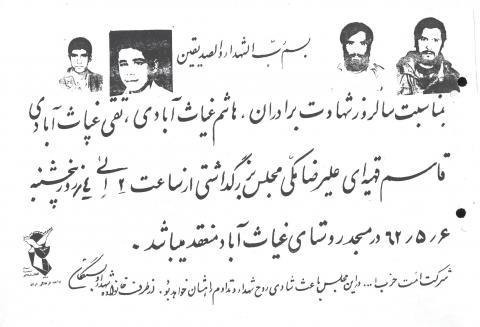 بسم رب الشهداء والصدیقین
بمناسبت سالروز شهادت برادران، هاشم غیاث آبادی، تقی غیاث آبادی
قاسم قهیه ای علیرضا مکی مجلس بزرگداشتی از ساعت ۲ الی ۴ روز پنجشنبه
۶۲٫۵٫۶ در مسجد روستای غیاث آباد منعقد میباشد.
شرکت امت حزب ا... در این مجلس باعث شادی روح شهدا و تداوم راهشان خواهد بود. از طرف خانواده شهدا و بستگان